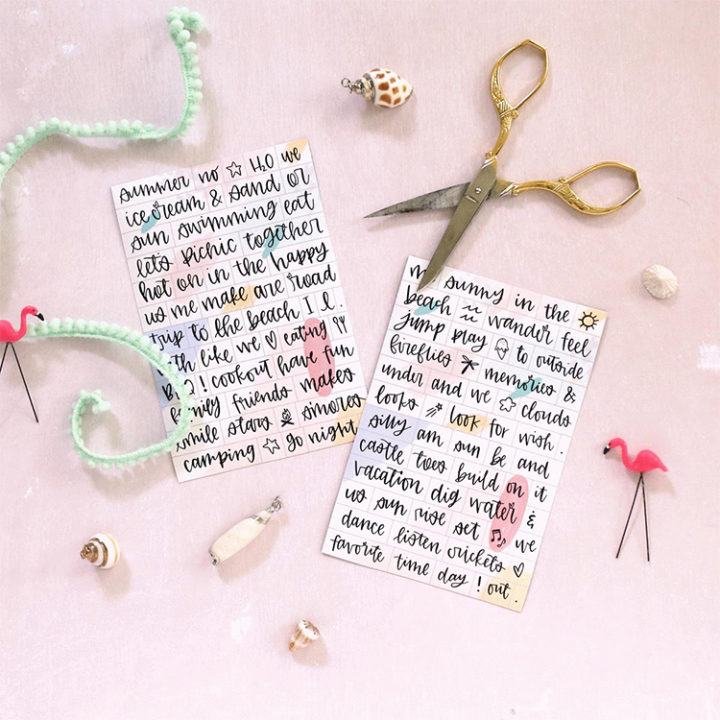 summer no ☆ H₂O we
ice cream & sand or
sun swimming eat
lets picnic together
hot on in the happy
us me make are road
trip to the beach I l .
with like we ♡ eating
! cookout have fun
family friends makes
smile stars s'mores
camping ☆ go night
sunny in the
beach wander feel
jump play to outside
fireflies memories &
under and we ☆ clouds
looks look for wish .
silly am sun be and
castle toes build on it
vacation dig water &
us sun rise set ♫ we
dance listen crickets ♡
favorite time day ! out .